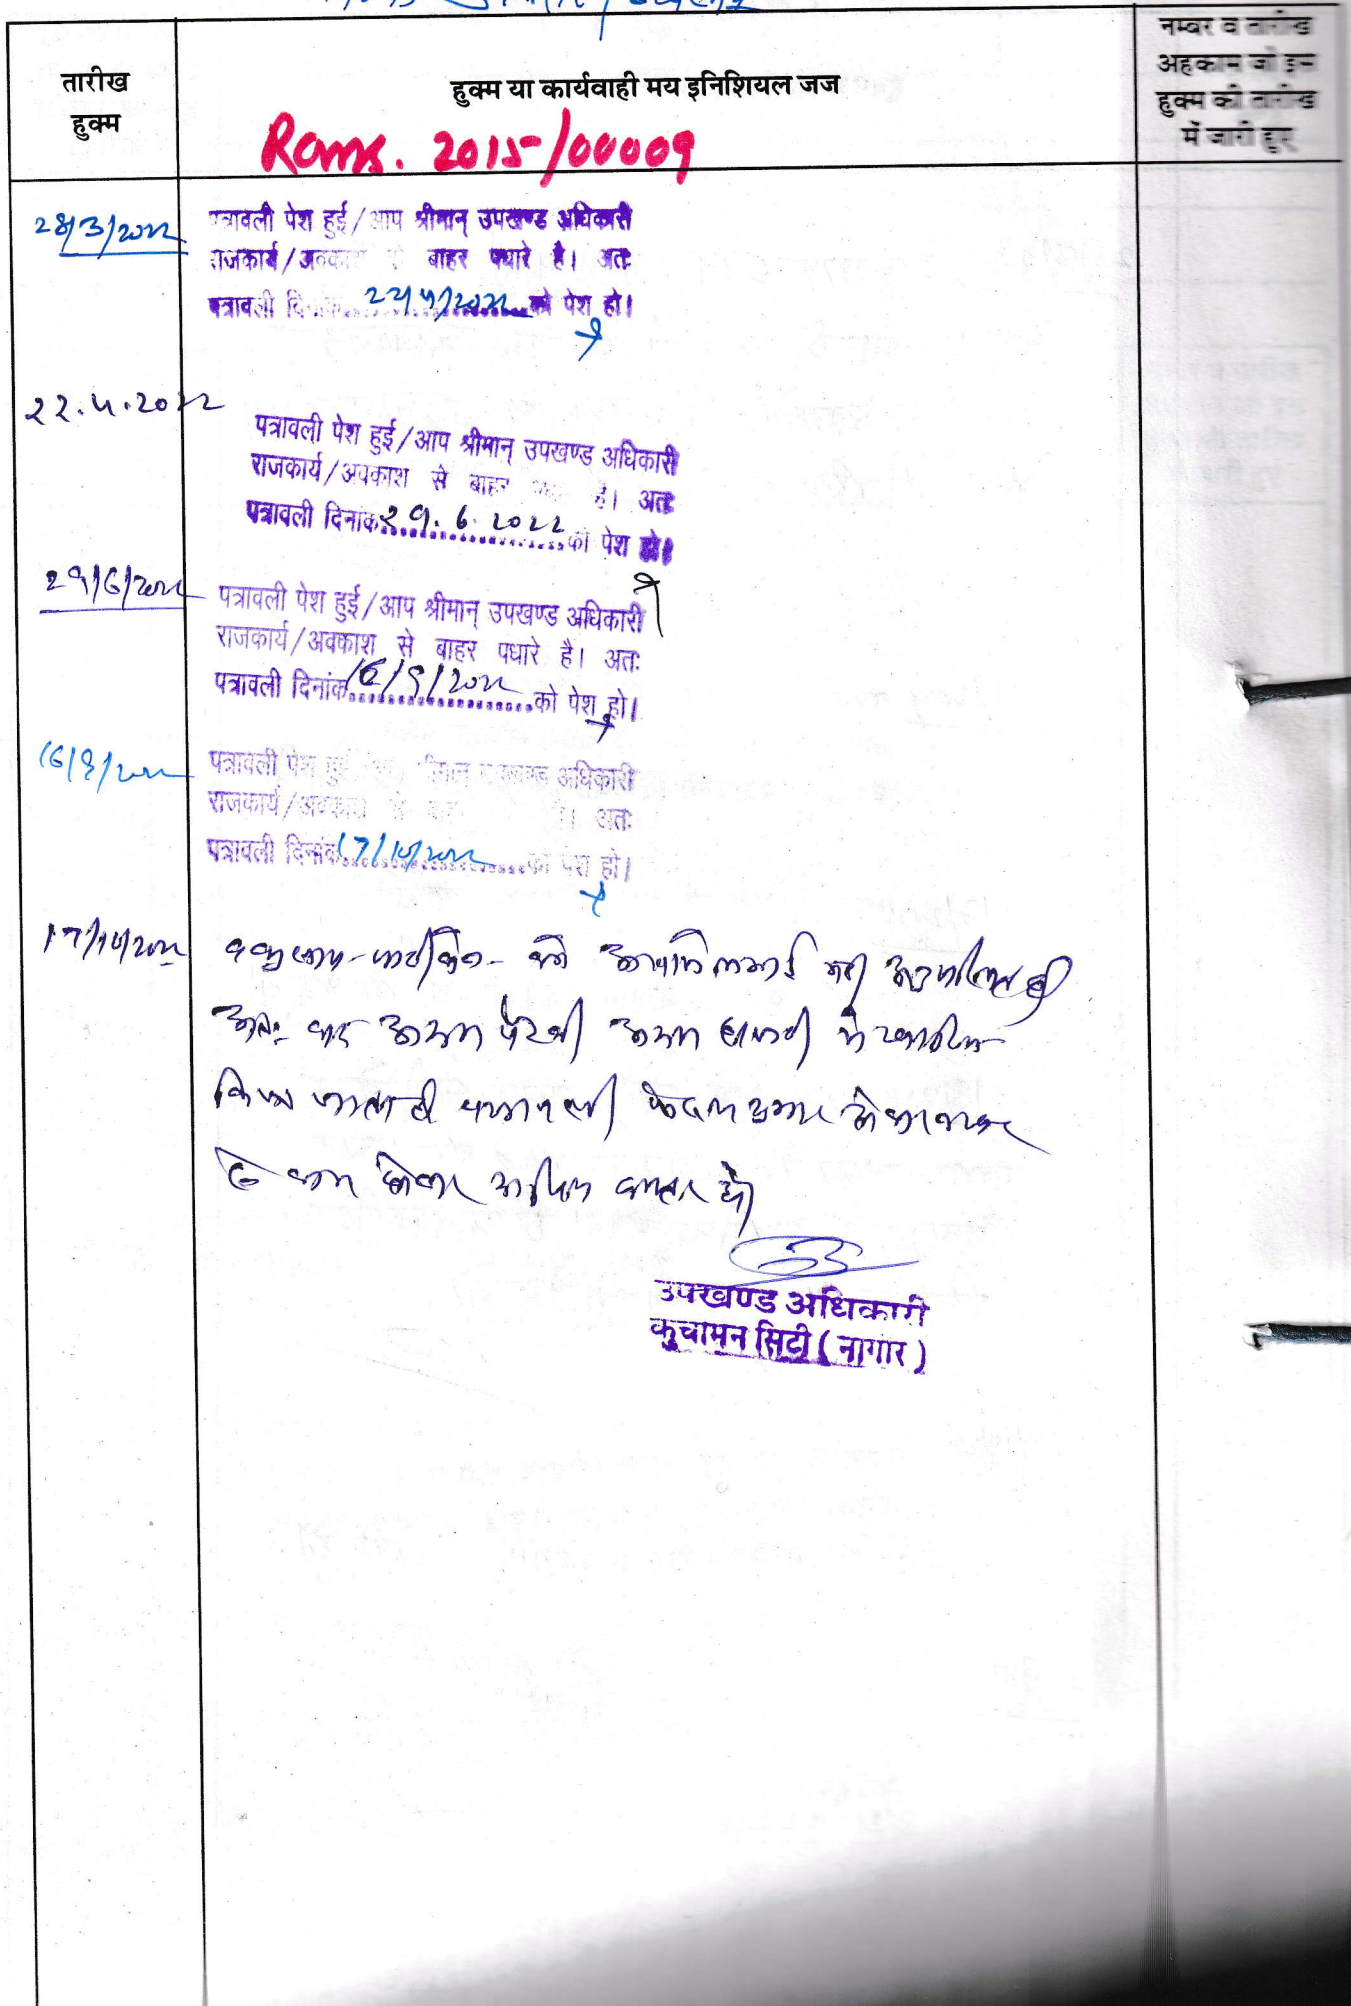 तारीख
हुक्म
हुक्म या कार्यवाही मय इनिशियल जज
नम्बर व तारीख
अहकाम जो इस
हुक्म की तारीख
में जारी हुए
Rcms. 2015/00009
28/3/2022
पत्रावली पेश हुई/आप श्रीमान् उपखण्ड अधिकारी
राजकार्य/अवकाश से बाहर पधारे है। अतः
पत्रावली दिनांक 22/4/2022 को पेश हो।
22.4.2022
पत्रावली पेश हुई/आप श्रीमान् उपखण्ड अधिकारी
राजकार्य/अवकाश से बाहर है। अतः
पत्रावली दिनांक 29.6.2022 को पेश हो।
29/6/2022
पत्रावली पेश हुई/आप श्रीमान् उपखण्ड अधिकारी
राजकार्य/अवकाश से बाहर पधारे है। अतः
पत्रावली दिनांक 16/9/2022 को पेश हो।
16/9/2022
पत्रावली पेश हुई उपखण्ड अधिकारी
राजकार्य/अवकाश से बाहर है। अतः
पत्रावली दिनांक 17/10/2022 को पेश हो।
17/10/2022
अतः वाद अदम पैरवी अदम हाजरी में खारीज
किया जाता है पत्रावली फैसल शुमार होकर
दाखिल दफ्तर हो
उपखण्ड अधिकारी
कुचामन सिटी (नागौर)